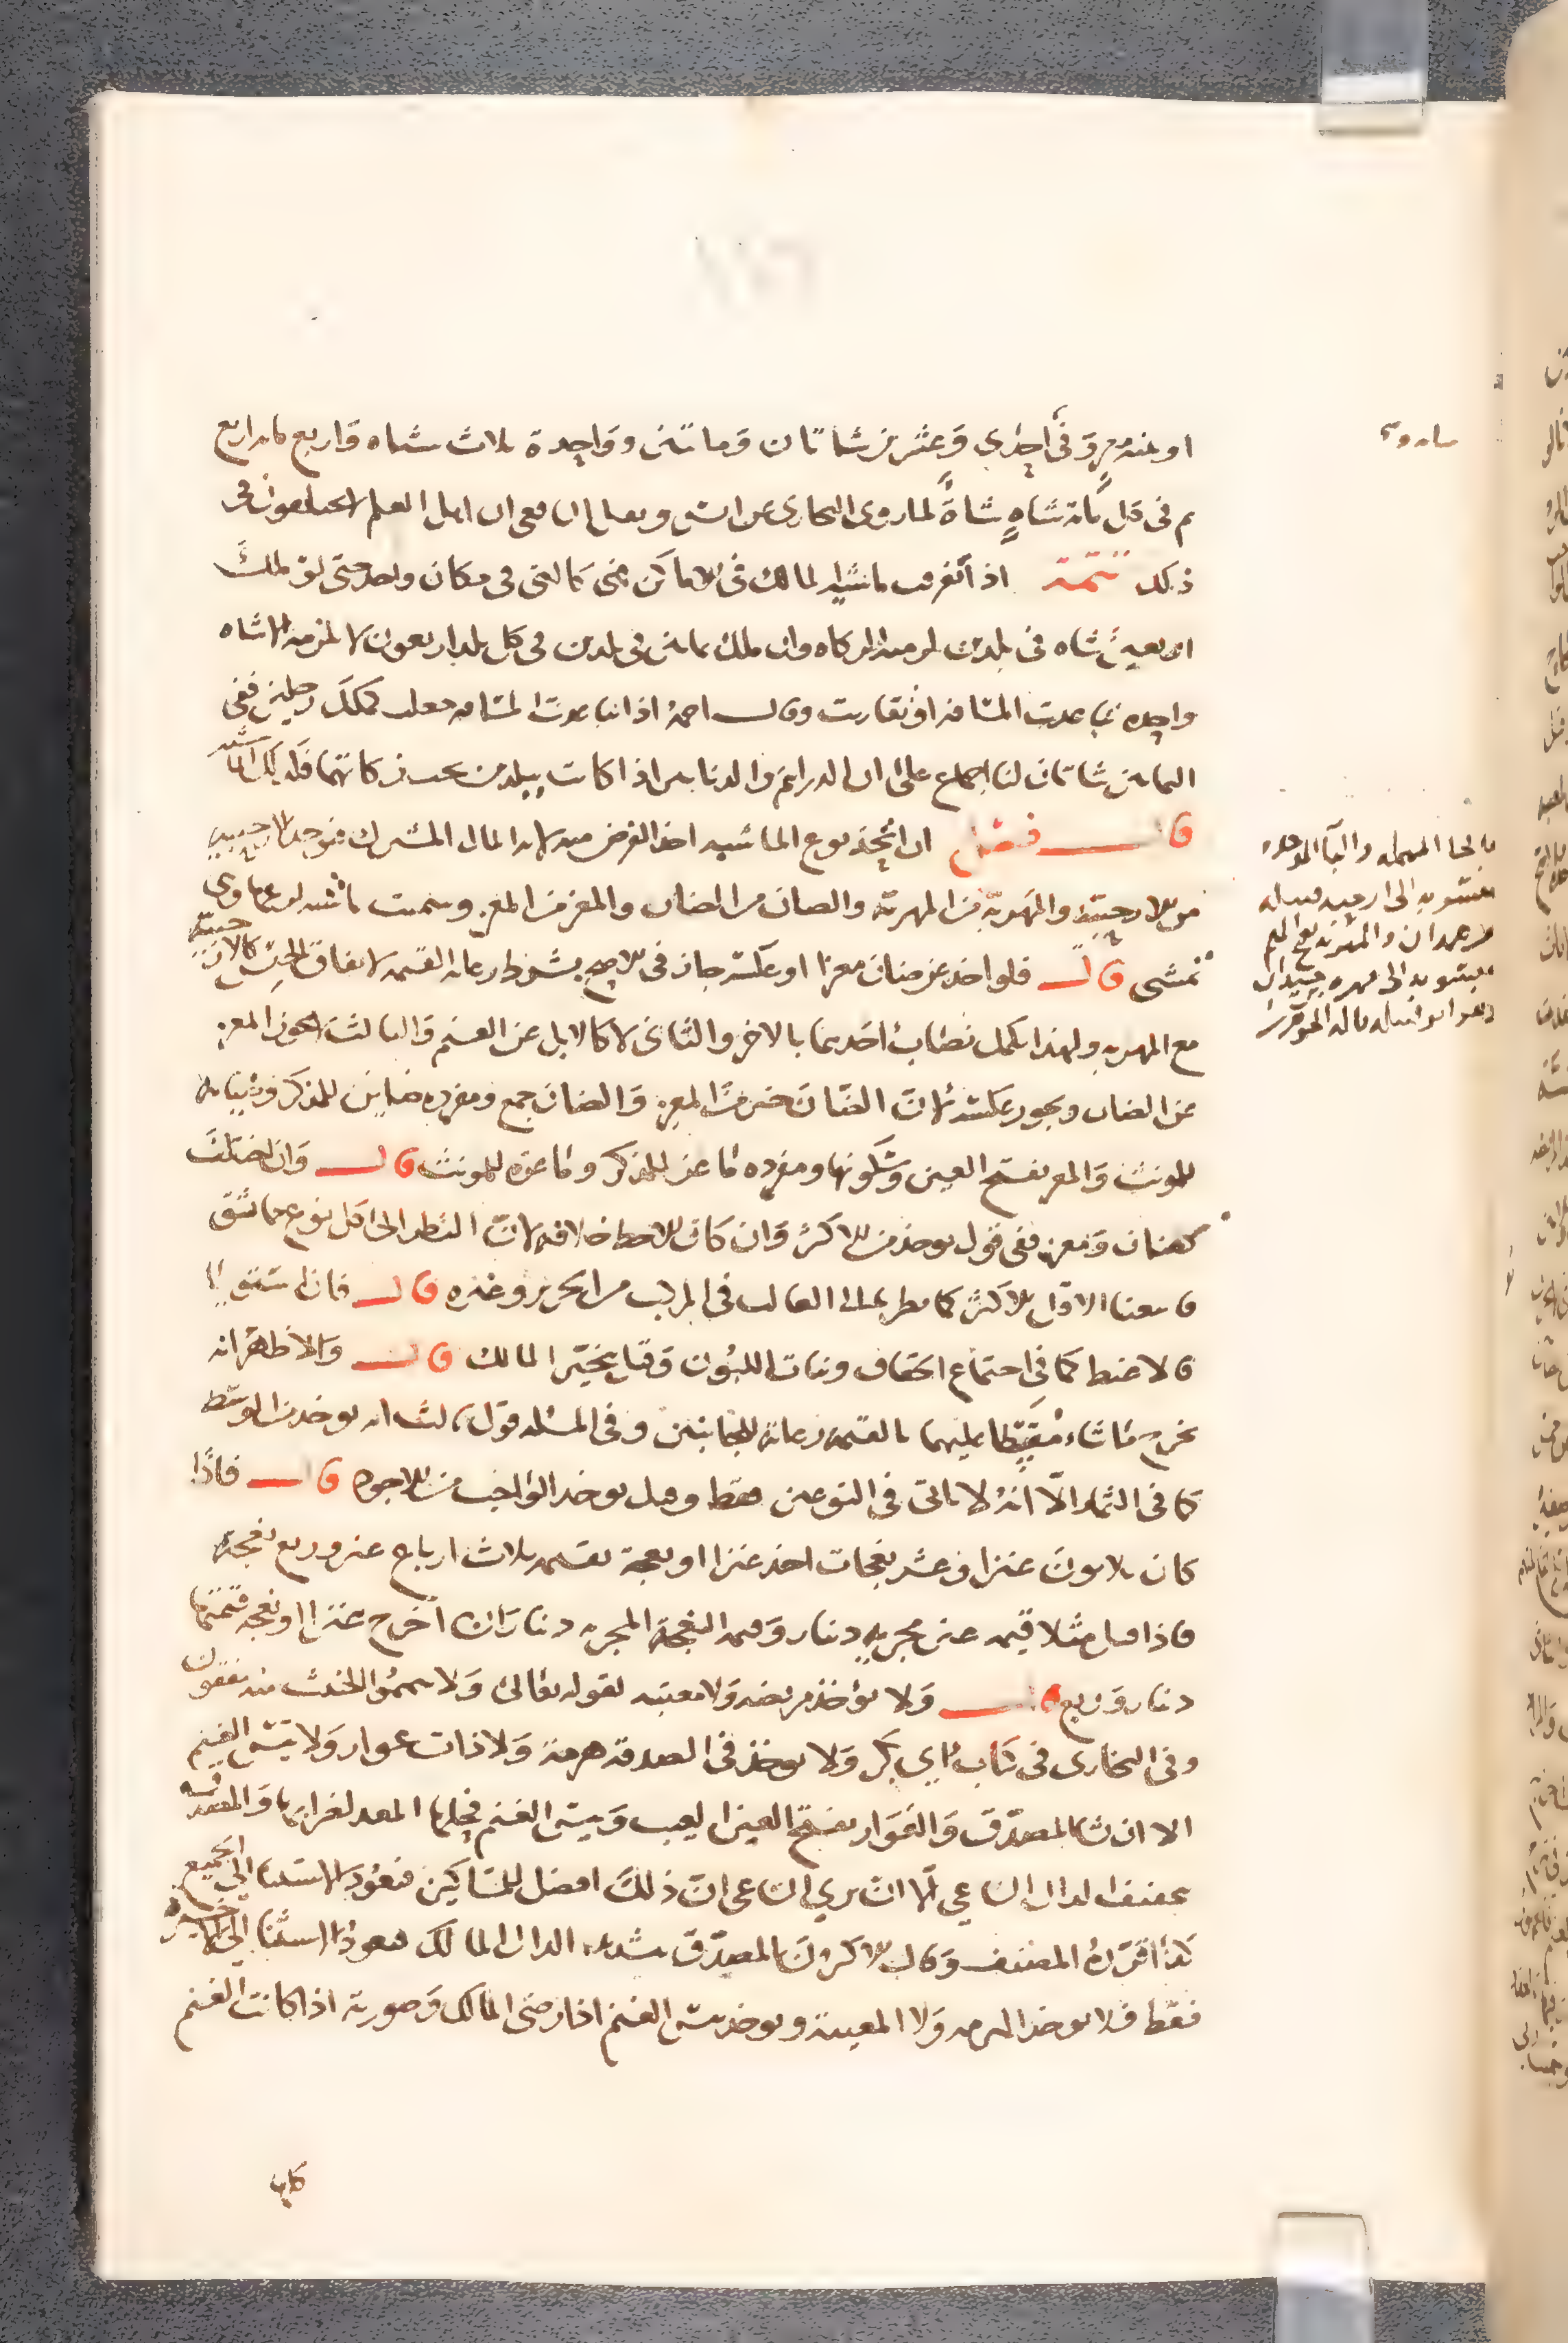 او عنز معز وفي احدى وعشرين شاتان ومائتين وواحدة ثلاث شياه واربع مائة اربع
ثم في كل مائة شاة شاة لما روى البخارى عن انس ونقل الشافعى ان اهل العلم لا يختلفون في
ذلك تتمة اذا تفرقت ماشية المالك في اماكن فهي كالتي في مكان واحد حتى لو ملك
اربعين شاه في بلدين لزمته الزكاه وان ملك ثمانين في بلدين في كل بلد اربعون لا تلزمه الا شاه
واحده تباعدت المسافة او تقاربت وقال احمد اذا تباعدت المسافه جعلت كملك رجلين ففي
الثمانين شاتان لنا اجماع على ان الدراهم والدنانير اذا كانت ببلدين تجب زكاتهما فكذلك الماشية
قال فصل ان اتحد نوع الماشيه اخذ الفرض منه لانه المال المشترك فتوخذ الارحبيه
من الارحبية والمهرية من المهرية والضان من الضان والمعز من المعز وسميت ماشيه لرعيها وهي
تمشى قال فلو اخذ عن ضان معزا او عكسه جاز في الاصح بشرط رعاية القيمه لاتفاق الجنس كالارحبية
مع المهريه ولهذا يكمل نصاب احدهما بالاخر والثانى لا كالابل عن الغنم والثالث لا يجوز المعز
عن الضان ويجوز عكسه لان الضان خير من المعز والضان جمع ومفرده ضاين للمذكر وضاينه
للمونث والمعز بفتح العين وسكونها ومفرده ماعز للمذكر وماعزه للمونث قال وان اختلف
كضان ومعز ففى قول يوخذ من الاكثر وان كان الاحظ خلافه لان النظر الى كل نوع مما يشق
فاتبعنا الاقل الاكثر كما نظر الى الغالب في المركب من الحرير وغيره قال فان استويا
فالاغبط كما في اجتماع الحقاق وبنات اللبون وقيل يتخير المالك قال والاظهر انه
يخرج ما شاء مقسطا عليهما بالقيمة رعاية للجانبين وفي المسئله قول ثالث انه يوخذ من الوسط
كما في الثمار الا انه لا ياتى في النوعين فقط وقيل يوخذ الواجب من الاجود قال فاذا
كان ثلاثون عنزا وعشر نعجات اخذ عنزا او نعجة بقيمه ثلاث ارباع عنز وربع نعجة
فاذا قيل مثلا قيمه عنز مجزيه دينار وقيمه النعجة المجزيه ديناران اخرج عنزا او نعجه قيمتها
دينار وربع قال ولا يؤخذ مريضه ولا معيبه لقوله تعالى ولا تيمموا الخبيث منه تنفقون
وفي البخارى في كتاب ابي بكر ولا يوخذ في الصدقة هرمة ولا ذات عوار ولا تيس الغنم
الا ان شا المصدق والعوار بفتح العين العيب وتيس الغنم فحلها المعد لضرابها والمصدق
بتخفيف الدال الساعي الا ان يري الساعى ان ذلك افضل للمساكين فيعود الاستثنا الى الجميع
كذا قرره المصنف وقال الاكثرون المصدق بتشديد الدال المالك فيعود الاستثنا الى الاخير
فقط فلا يوخذ الهرمه ولا المعيبة ويوخذ تيس الغنم اذا رضى المالك وصورته اذا كانت الغنم
كلها
بالحا المهمله والبا الموحده
منسوبه الى ارحب قبيله
من همدان والمهريه بفتح الميم
منسوبه الى مهره بن حيدان
وهو ابو قبيله قاله الجوهري